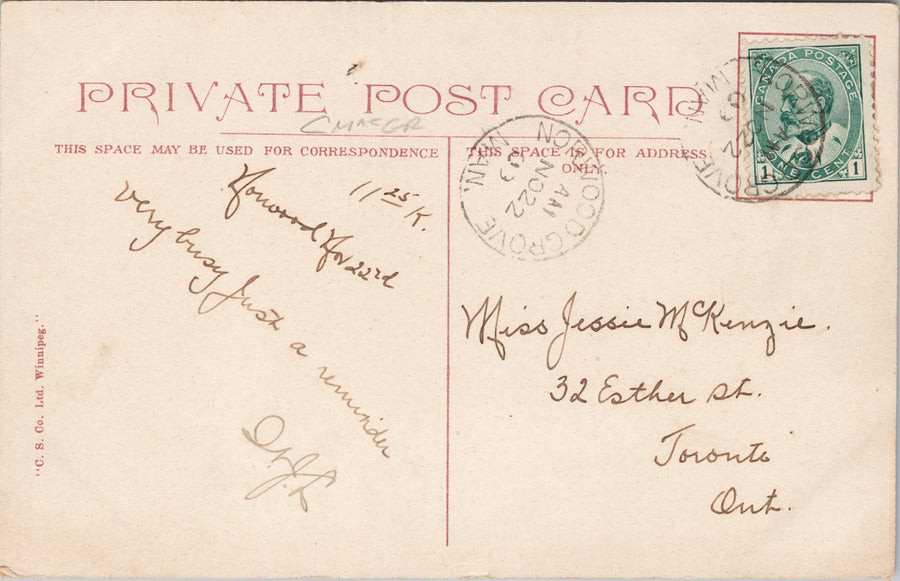 PRIVATE POST CARD
THIS SPACE MAY BE USED FOR CORRESPONDENCE
THIS SPACE IS FOR ADDRESS
ONLY.
11 25 K.
Norwood Nov 22nd
very busy Just a reminder
"C. S. Co. Ltd. Winnipeg."
NORWOOD GROVE
MAN.
AM
NO 22
CANADA POSTAGE
ONE CENT
1 1
Miss Jessie McKenzie.
32 Esther St.
Toronto
Ont.